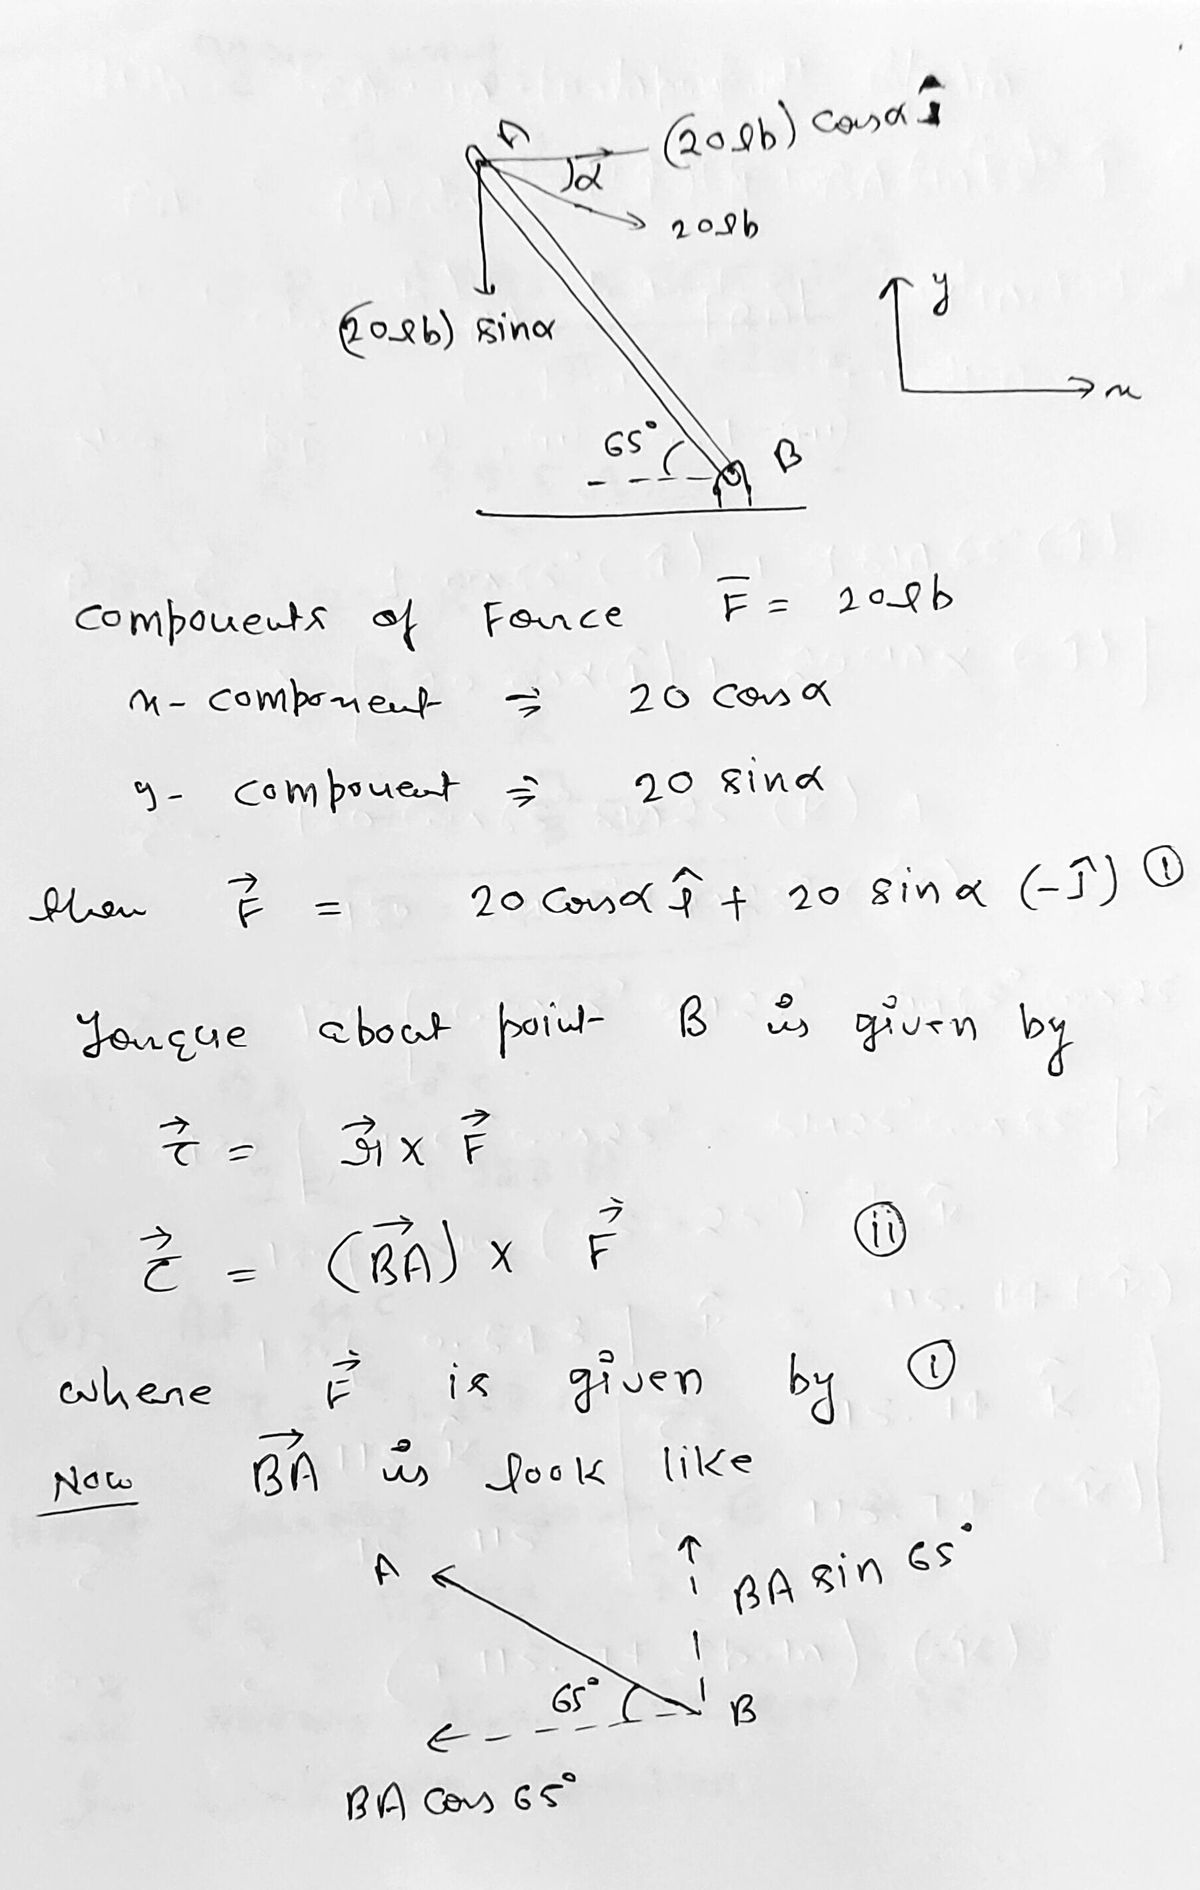 A
(20lb) cosα î
α
20lb
(20lb) sinα
y
x
65°
B
components of Force F̅ = 20lb
x- component ⇒ 20 cosα
y- component ⇒ 20 sinα
then F⃗ = 20 cosα î + 20 sinα (-ĵ) ①
Torque about point B is given by
τ⃗ = r⃗ × F⃗
τ⃗ = (B⃗A⃗) × F⃗ ⓘⓘ
where F⃗ is given by ①
Now B⃗A⃗ is look like
A
BA sin 65°
65°
B
BA cos 65°